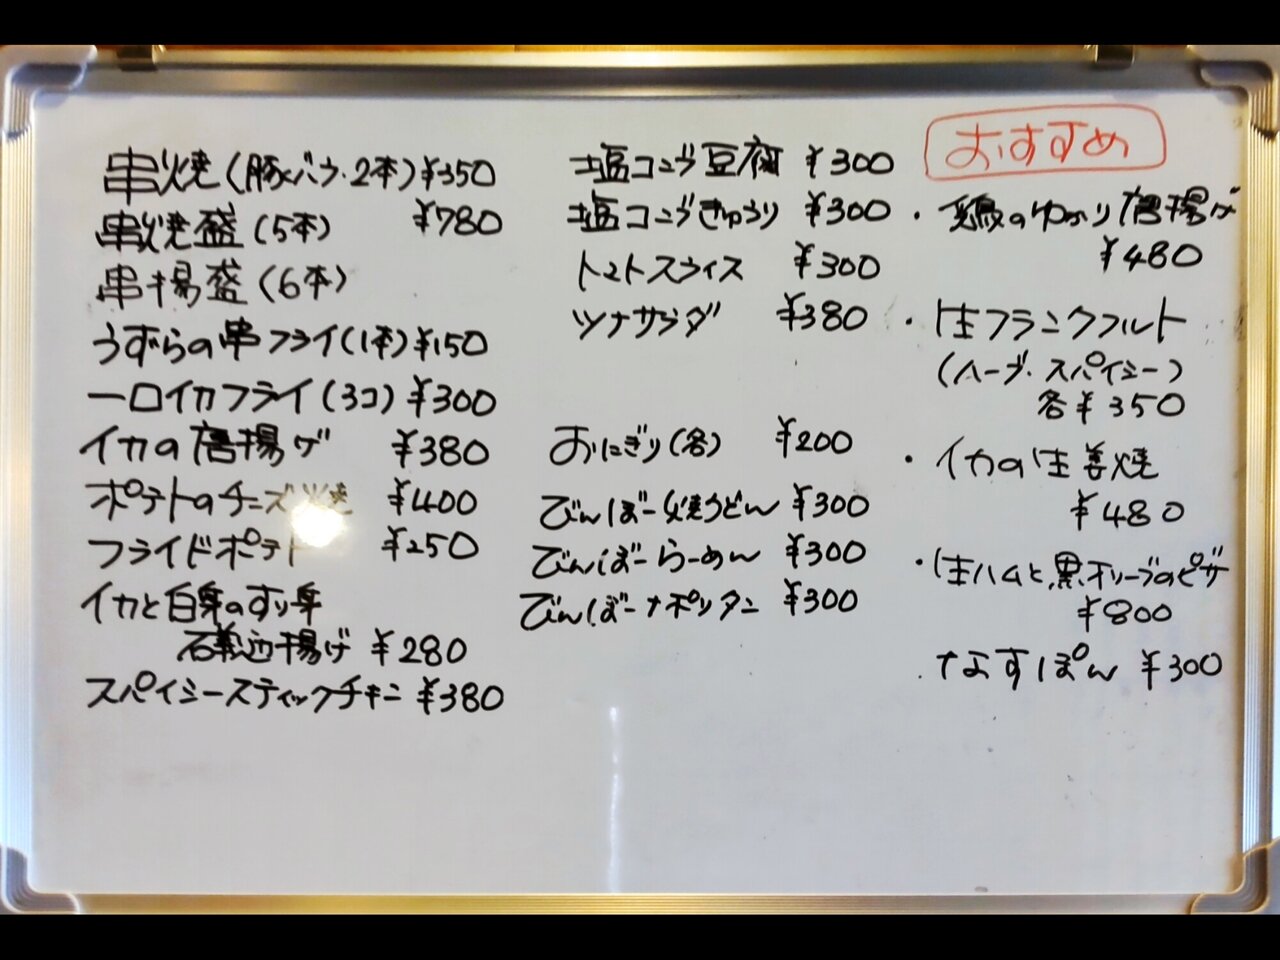 串焼(豚バラ・2本)¥350
串焼盛(5本) ¥780
串揚盛(6本)
うずらの串フライ(1本)¥150
一口イカフライ(3コ)¥300
イカの唐揚ゲ ¥380
ポテトのチーズ焼 ¥400
フライドポテト ¥250
イカと白身のすり身
磯辺揚げ ¥280
スパイシースティックチキン ¥380
塩コンブ豆腐 ¥300
塩コンブきゅうり ¥300
トマトスライス ¥300
ツナサラダ ¥380
おにぎり(各) ¥200
びんぼー焼うどん ¥300
びんぼーらーめん ¥300
びんぼーナポリタン ¥300
おすすめ
・鶏のゆかり唐揚ゲ
¥480
・生フランクフルト
(ハーブ・スパイシー)
各¥350
・イカの生姜焼
¥480
・生ハムと黒オリーブのピザ
¥800
・なすぽん ¥300